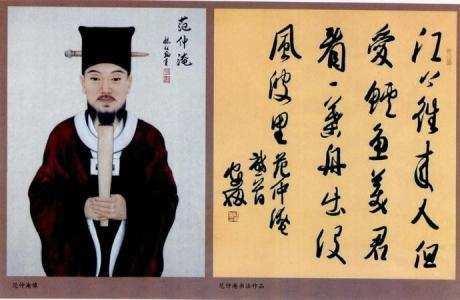 范仲淹
江上往来人但
愛鱸魚美君
看一葉舟出没
風波里 范仲淹
范仲淹像
范仲淹书法作品